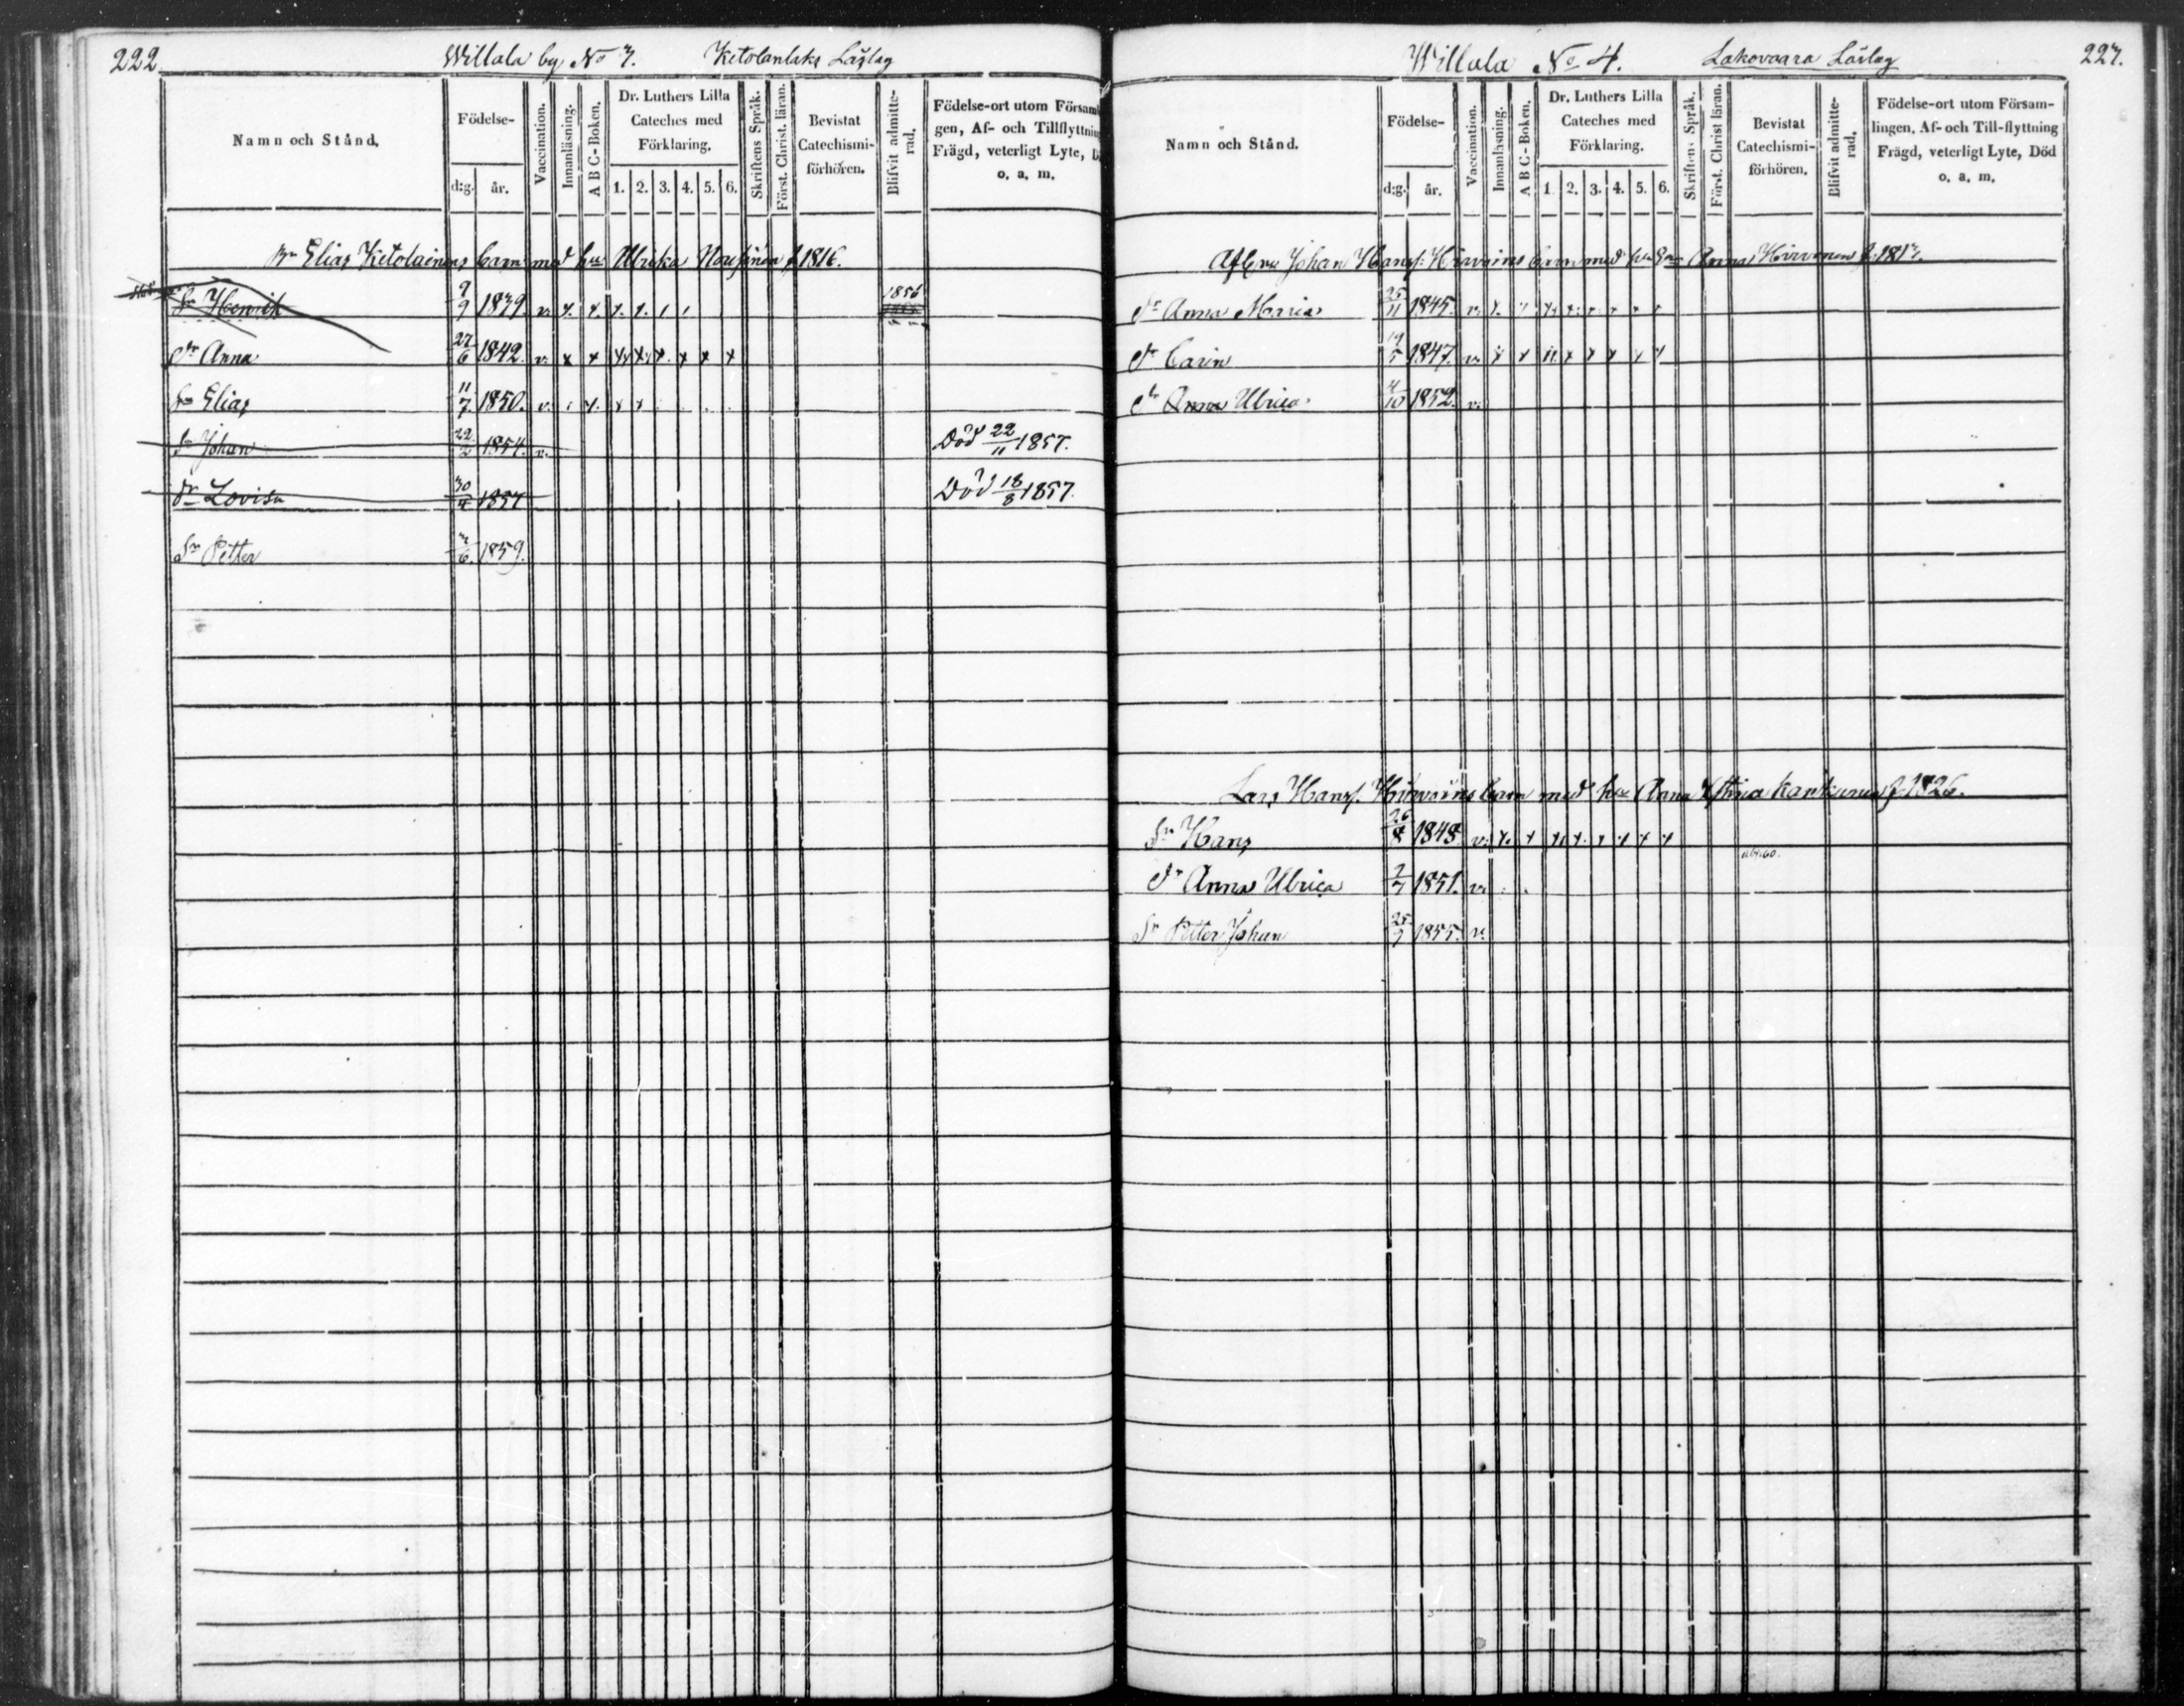 222 Willala by No 3. Ketolanlaks Läslag
Namn och Stånd.
Födelse-
d:g. år.
Vaccination.
Innanläsning.
A B C-Boken.
Dr. Luthers Lilla Cateches med Förklaring.
1. 2. 3. 4. 5. 6.
Skriftens Språk.
Först. Christ. läran.
Bevistat Catechismi-förhören.
Blifvit admitte-rad.
Födelse-ort utom Försam
gen, Af- och Tillflyttning
Frägd, veterligt Lyte, D
o. a. m.
Elias Ketolainens barn med hu Ulrika Nousiinen f 1816.
Sn Henrik 9/9 1839. v. x. x. x. x. 1856
Dr Anna 27/6 1842. v. x x x x x. x x x
Sn Elias 11/7 1850. v. x. x x
Sn Johan 22/2 1854. v. Död 22/11 1857.
Dr Lovisa 30/4 1857 Död 18/8 1857.
Sn Petter 3/6 1859.
Willala No 4. Lakovaara Läslag 223.
Namn och Stånd.
Födelse-
d:g. år.
Vaccination.
Innanläsning.
A B C-Boken.
Dr. Luthers Lilla Cateches med Förklaring.
1. 2. 3. 4. 5. 6.
Skriftens Språk.
Först. Christ läran.
Bevistat Catechismi-förhören.
Blifvit admitte-rad.
Födelse-ort utom Försam-
lingen, Af- och Till-flyttning
Frägd, veterligt Lyte, Död
o. a. m.
Johan Hanss. Hirvoins barn med Anna Hirvonen f. 1813.
Dr Anna Maria 25/11 1845. v. x.
Dr Carin 19/5 1847. v. x x x x x x x
Dr Anna Ulrica 4/10 1852. v.
Lars Hanss. Hirvoins barn med hu Anna Stina f 1826.
Sn Hans 26/8 1848. v. x. x x x. x x x x
Dr Anna Ulrica 2/7 1851. v.
Sn Petter Johan 25/9 1855. v.